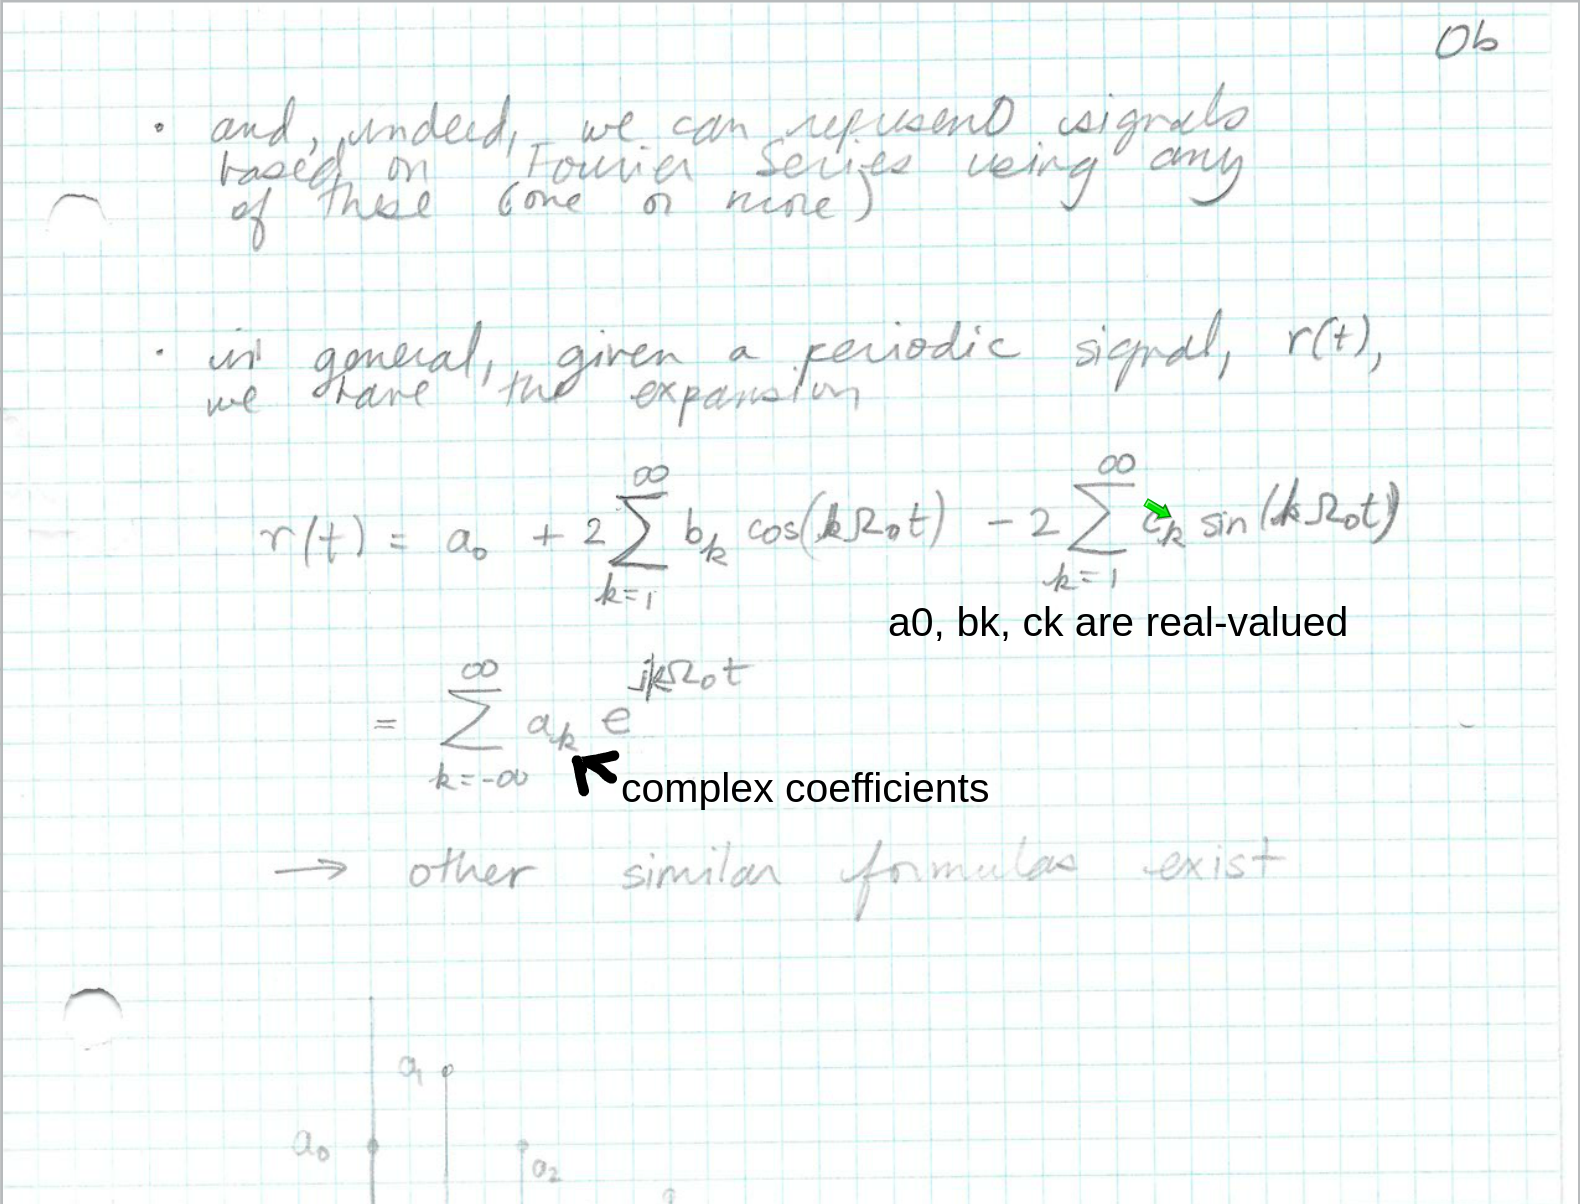 06
· and, indeed, we can represent signals
based on Fourier Series using any
of these (one or more)
· in general, given a periodic signal, r(t),
we have the expansion
r(t) = a₀ + 2 ∑_{k=1}^{∞} b_k cos(kΩ₀t) - 2 ∑_{k=1}^{∞} c_k sin(kΩ₀t)
a0, bk, ck are real-valued
= ∑_{k=-∞}^{∞} a_k e^{jkΩ₀t}
complex coefficients
→ other similar formulas exist
a₁
a₀
a₂